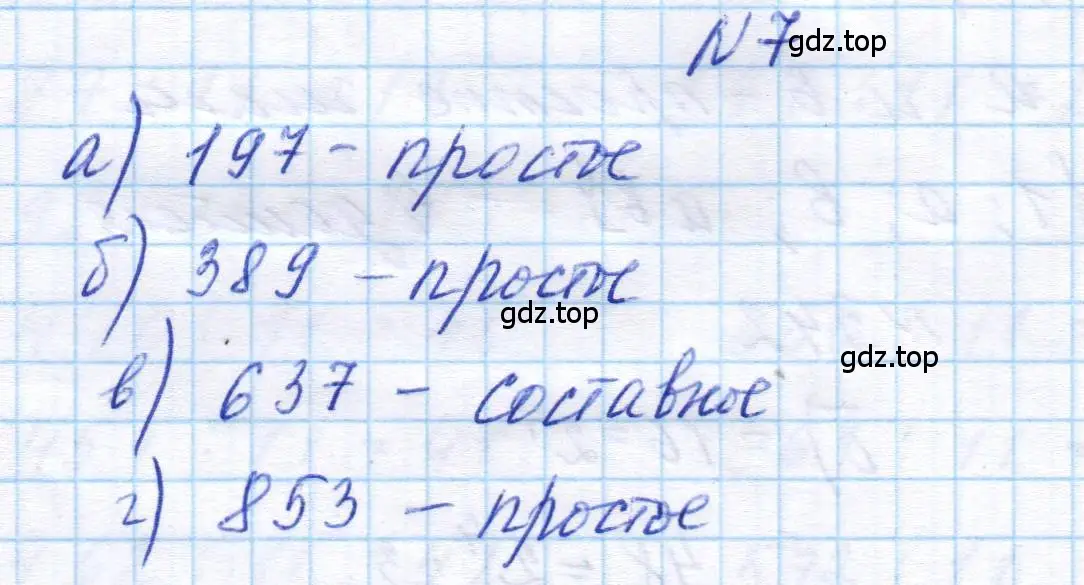 N 7
gdz.top
а) 197 - простое
б) 389 - простое
gdz.top
gdz.top
в) 637 - составное
г) 853 - простое